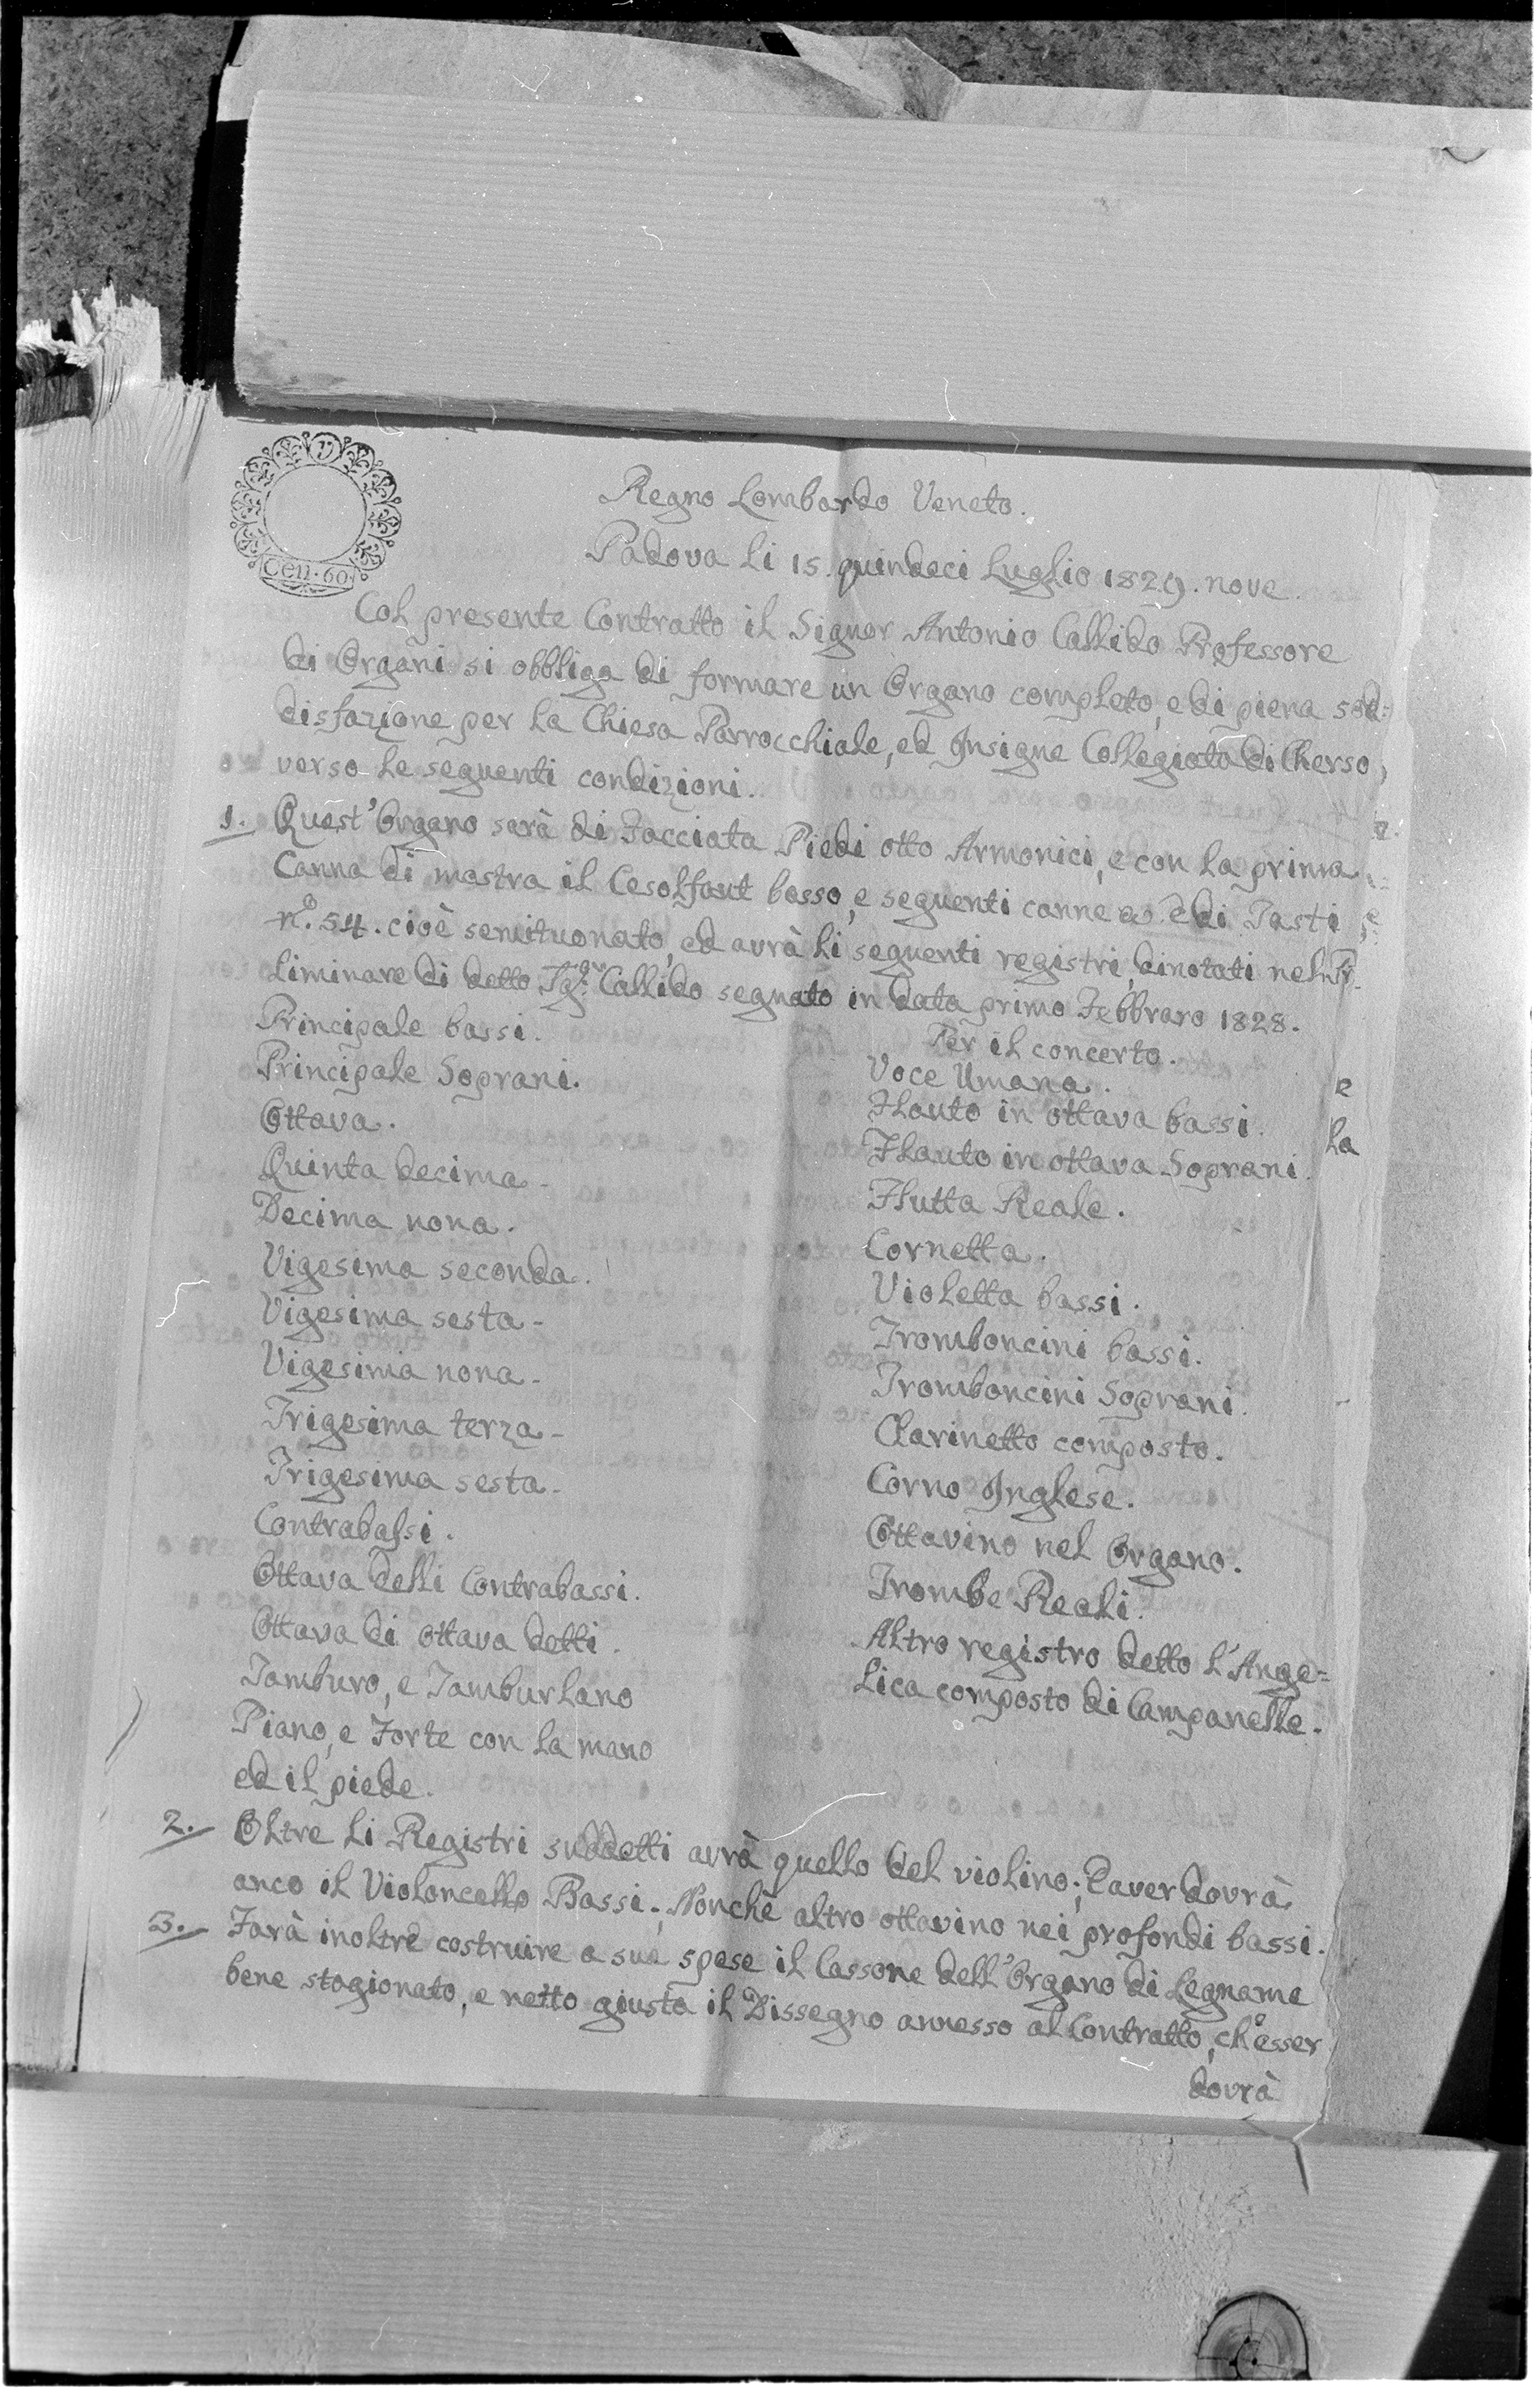 Cen. 60.
Regno Lombardo Veneto.
Padova li 15. quindeci Luglio 1829. nove.
Col presente Contratto il Signor Antonio Callido Professore
di Organi si obbliga di formare un Organo completo, e di piena sod=
disfazione per la Chiesa Parrocchiale, ed Insigne Collegiata di Cherso,
verso le seguenti condizioni.
1. Quest'Organo sarà di Facciata Piedi otto Armonici, e con la prima
Canna di mostra il Cesolfaut basso, e seguenti canne e di Tasti
n.º 54. cioè semituonato, ed avrà li seguenti registri, dinotati nel Pr
liminare di detto Callido segnato in data primo Febbraro 1828.
Principale bassi.
Principale Soprani.
Ottava.
Quinta decima.
Decima nona.
Vigesima seconda.
Vigesima sesta.
Vigesima nona.
Trigesima terza.
Trigesima sesta.
Contrabassi.
Ottava delli Contrabassi.
Ottava di ottava detti.
Tamburo, e Tamburlano
Piano, e Forte con la mano
ed il piede.
Per il concerto.
Voce Umana.
Flauto in ottava bassi.
Flauto in ottava Soprani.
Flutta Reale.
Cornetta.
Violetta bassi.
Tromboncini bassi.
Tromboncini Soprani.
Clarinetto composto.
Corno Inglese.
Ottavino nel Organo.
Trombe Reali.
Altro registro detto l'Ange=
lica composto di Campanelle.
e
la
2. Oltre li Registri suddetti avrà quello del violino; Eaver dovrà
anco il Violoncello Bassi; Nonchè altro ottavino nei profondi bassi.
3. Farà inoltre costruire a sue spese il Cassone dell'Organo di Legname
bene stagionato, e netto giusta il Dissegno annesso al Contratto, ch'esser
dovrà